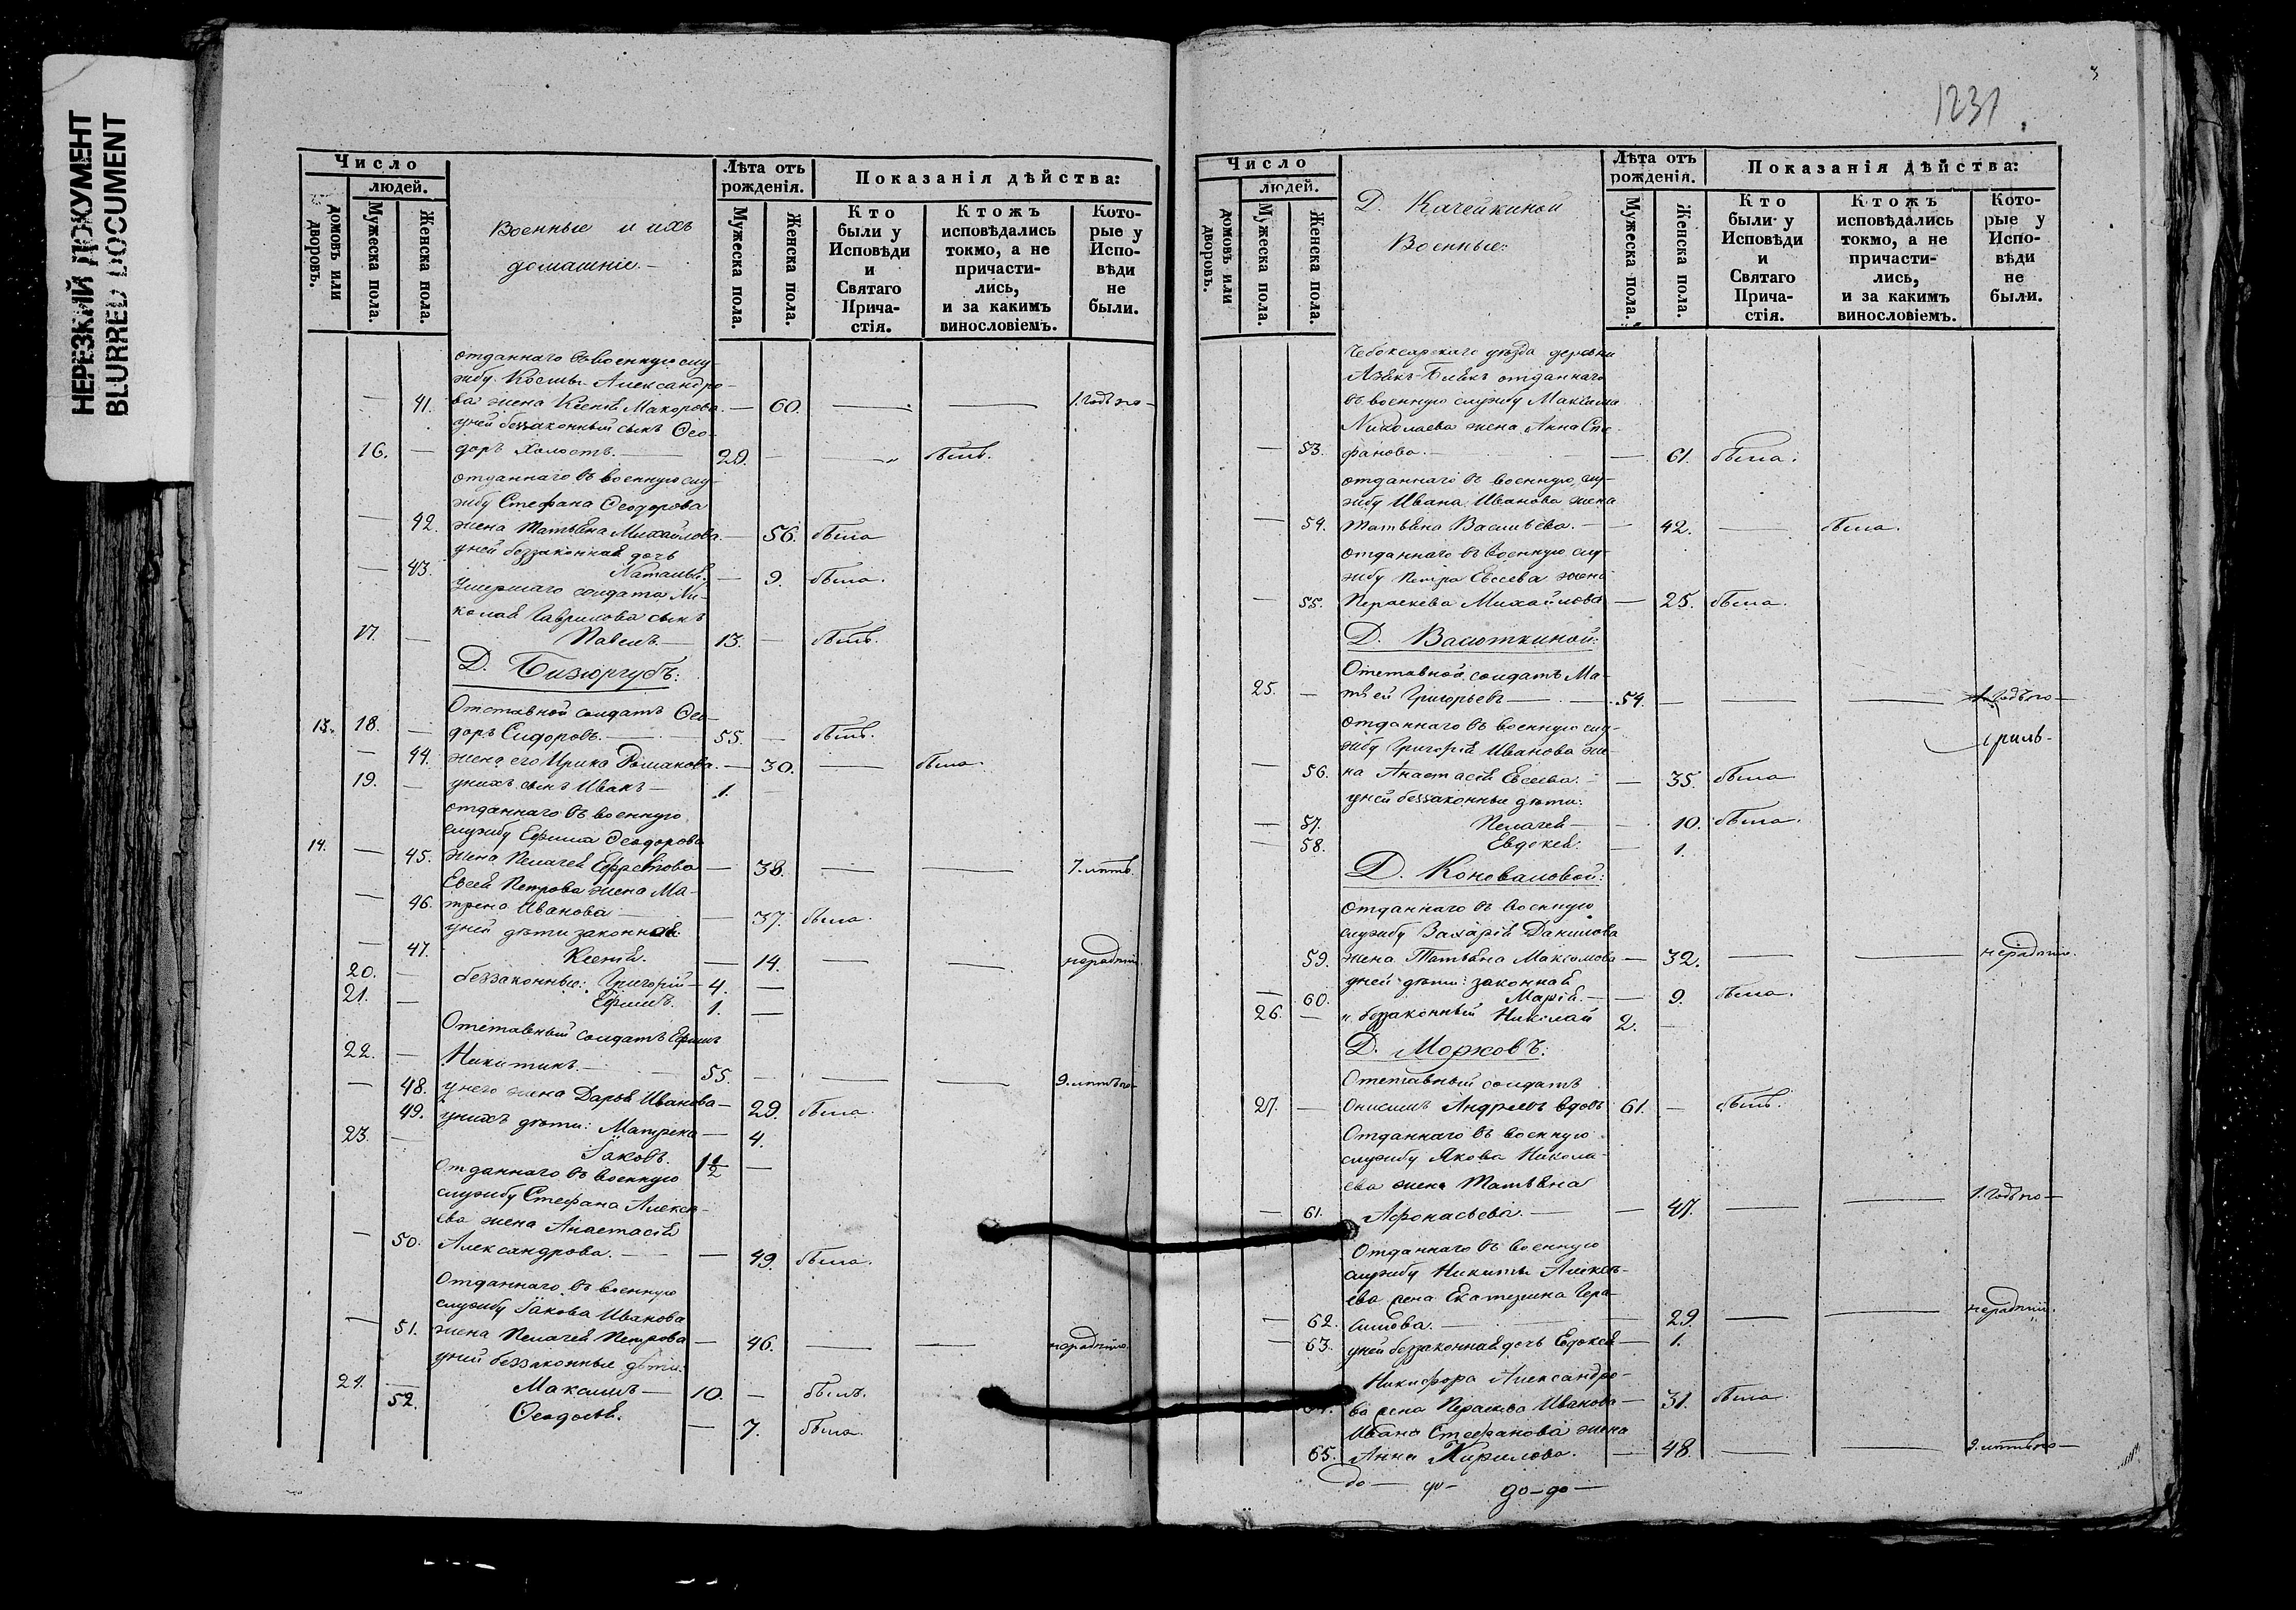 НЕРЕЗКИЙ ДОКУМЕНТ
BLURRED DOCUMENT
Число
людей.
домовъ или дворовъ.
Мужеска пола.
Женска пола.
Военные и ихъ
домашніе.
Лѣта отъ рожденія.
Мужеска пола.
Женска пола.
Показанія дѣйства:
Кто были у Исповѣди и Святаго Прича-стія.
Ктожъ исповѣдались токмо, а не причасти-лись, и за какимъ винословіемъ.
Кото-рые у Испо-вѣди не были.
отданнаго въ военную слу-
жбу Космы Александро-
41. ва жена Ксенія Макарова — 60. — — 1. годъ по —
у ней беззаконный сынъ Ѳео-
16. — доръ холостъ. — 29. — — былъ.
отданнаго въ военную слу-
жбу Стефана Ѳеодорова
— 42. жена Татьяна Михайлова — 56. была
у ней беззаконная дочь
— 43. Наталья. — 9. была.
умершаго солдата Ни-
колая Гаврилова сынъ
17. — Павелъ — 13. — былъ.
Д. Бизюргубъ:
Отставной солдатъ Ѳео-
13. 18. — доръ Сидоровъ. — 55. — былъ.
— 44. жена его Ирина Романова. — 30. — была.
19. — у нихъ сынъ Иванъ — 1. —
отданнаго въ военную
службу Ефима Ѳеодорова
14. — 45. жена Пелагея Ефремова — 38. — — 7. лѣтъ.
Евсея Петрова жена Ма-
— 46. трена Иванова — 37. была.
у ней дѣти законная:
— 47. Ксенія. — 14. — — нерадѣнію.
20. — беззаконные: Григорій — 4. —
21. — Ефимъ. 1. —
Отставный солдатъ Ефимъ
22. — Никитинъ. — 55. — — — 9. лѣтъ по —
— 48. у него жена Дарья Иванова — 29. была.
49. у нихъ дѣти: Матрена — 4.
23. — Іаковъ. 1½ —
Отданнаго въ военную
службу Стефана Алексѣ-
ева жена Анастасія
— 50. Александрова. — — 49. была.
Отданнаго въ военную
службу Іакова Иванова
— 51. жена Пелагея Петрова — 46. — — нерадѣнію.
у ней беззаконные дѣти:
24. — Максимъ — 10. — былъ.
52. Ѳеодосья. — 7. была.
1231
Число
людей.
домовъ или дворовъ.
Мужеска пола.
Женска пола.
Д. Качейкиной
Военные:
Лѣта отъ рожденія.
Мужеска пола.
Женска пола.
Показанія дѣйства:
Кто были у Исповѣди и Святаго Прича-стія.
Ктожъ исповѣдались токмо, а не причасти-лись, и за какимъ винословіемъ.
Кото-рые у Испо-вѣди не были.
Чебоксарскаго уѣзда деревни
отданнаго
въ военную службу Максима
Николаева жена Анна Сте-
— 53. фанова. — — 61. была.
отданнаго въ военную слу-
жбу Ивана Иванова жена
— 54. Татьяна Васильева. — 42. — была.
отданнаго въ военную слу-
жбу Петра Евсеева жена
— 55. Пераскева Михайлова — 25. была.
Д. Васюткиной:
Отставной солдатъ Ма-
25. — тѳей Григорьевъ — 54. — — — 1. годъ по —
отданнаго въ военную слу-
жбу Григорія Иванова же-
— 56. на Анастасія Евсеева. — 35. была
у ней беззаконные дѣти:
— 57. Пелагея — — 10. была.
— 58. Евдокея. — 1.
Д. Коноваловой:
отданнаго въ военную
службу Захарія Данилова
59. жена Татьяна Максимова — 32. — — нерадѣнію.
у ней дѣти: законная
— 60. Марія. — — 9. была.
26. — и беззаконный Николай 2. —
Д. Моржовъ:
Отставный солдатъ
27. — Онисимъ Андреевъ вдовъ 61. — былъ.
Отданнаго въ военную
службу Якова Никола-
ева жена Татьяна
— 61. Афонасьева. — — 47. — — 1. годъ по —
Отданнаго въ военную
службу Никиты Алексѣ-
ева жена Екатерина Гера-
— 62. симова. — 29. — — нерадѣнію.
— 63. у ней беззаконная дочь Евдокея — 1.
Никифора Александро-
64. ва жена Пераскева Иванова — 31. была.
Ивана Стефанова жена
65. Анна Кирилова. — 48. — — 9. лѣтъ по —
до — до — до — до —